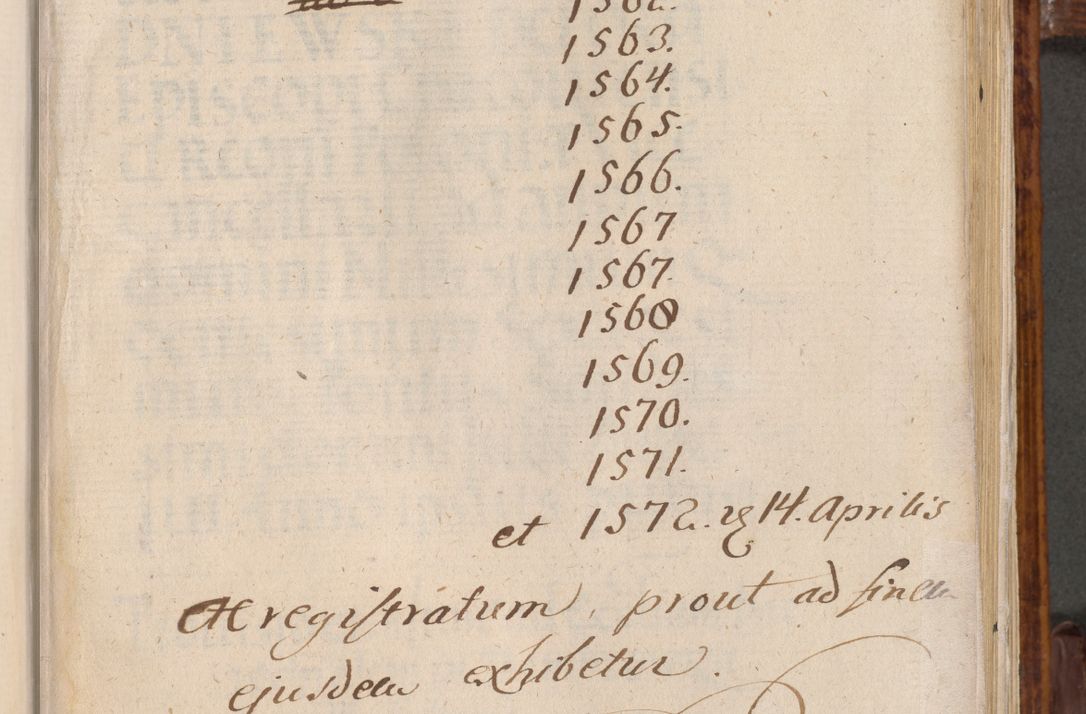 1562.
1563.
1564.
1565.
1566.
1567
1567.
1568
1569.
1570.
1571.
et 1572. 14. Aprilis
registratum, prout ad finem
ejusdem exhibetur.